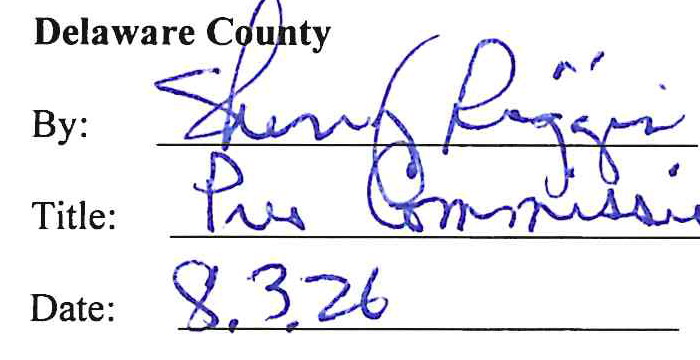 Delaware County
By: Sherry Riggin
Title: Pres Commissi
Date: 8.3.26